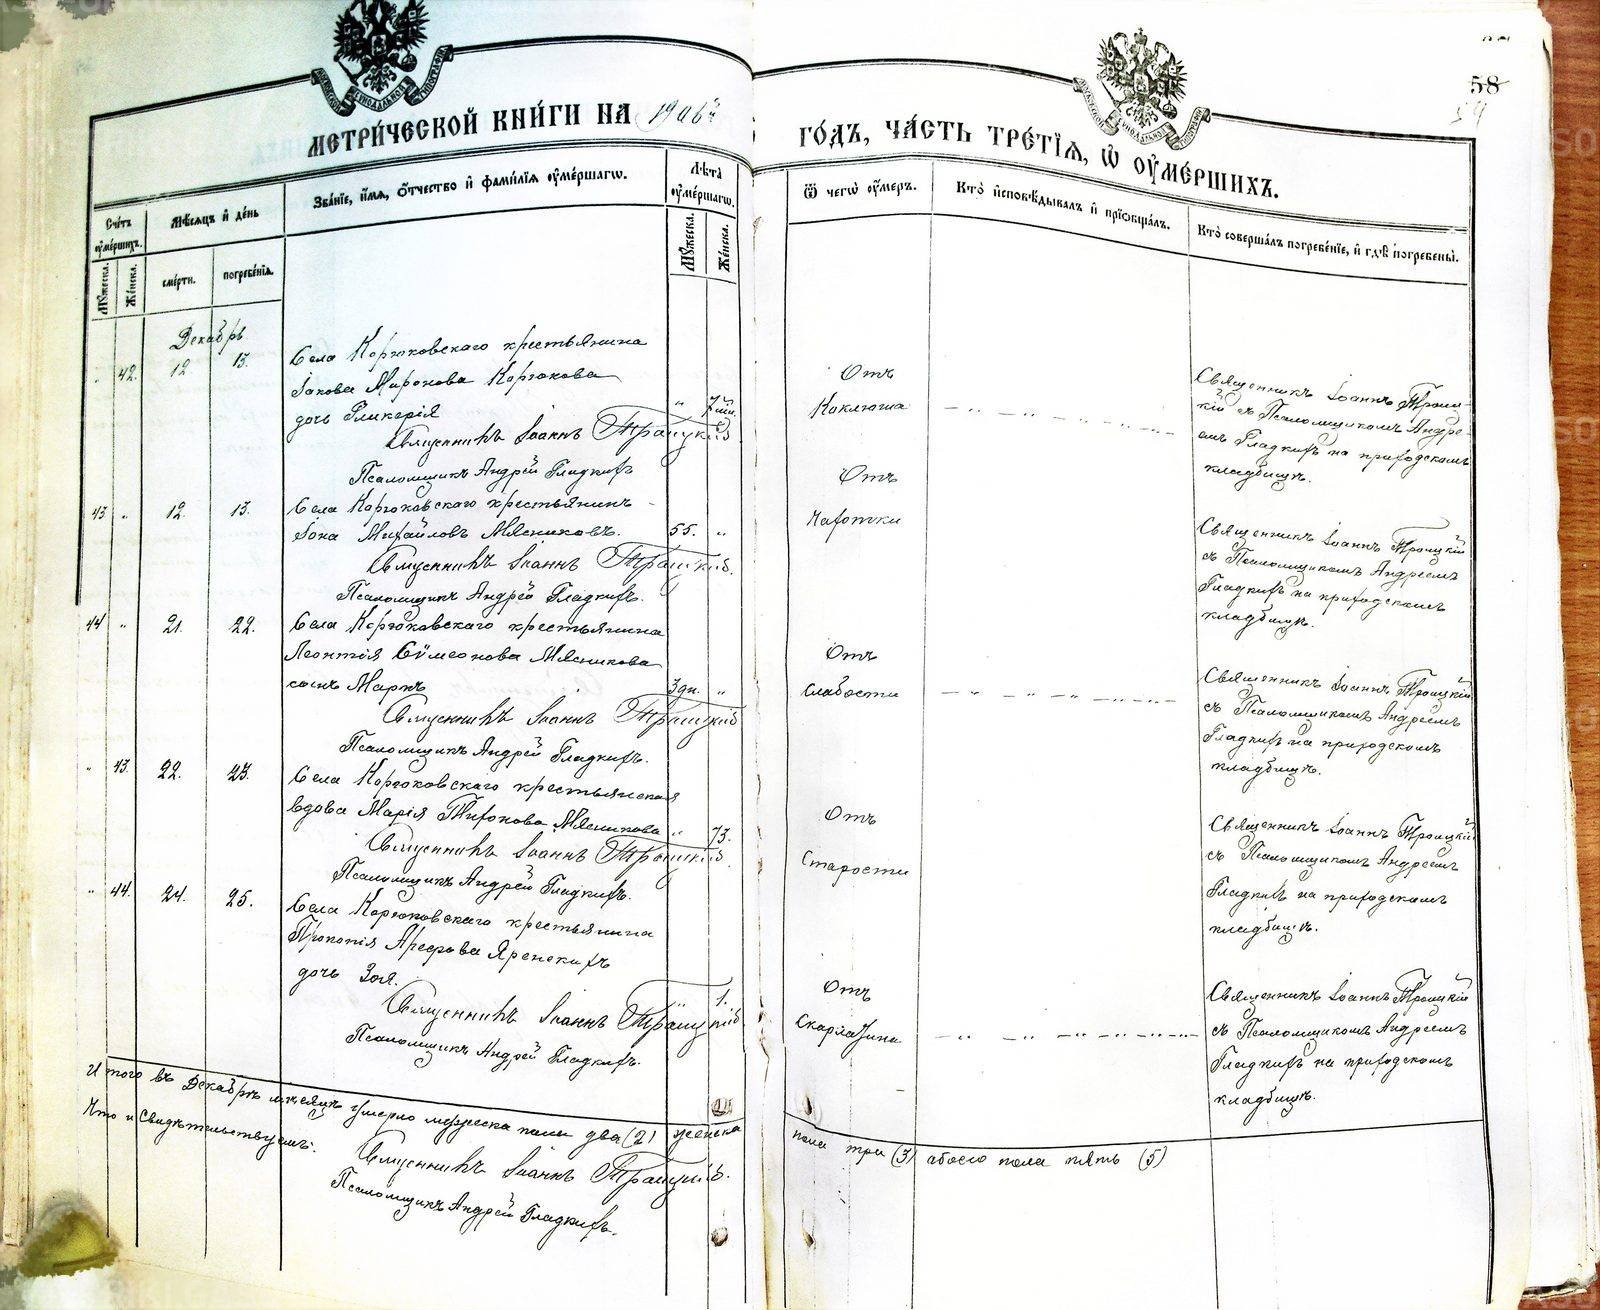 МЕТРИ́ЧЕСКОЙ КНИ́ГИ НА 1906й
ГО́ДЪ, ЧА́СТЬ ТРЕ́ТІЯ, Ѡ ОУ҆МЕ́РШИХЪ.
58
59
Сче́тъ оу҆ме́ршихъ.
Мꙋ́жеска.
Же́нска.
Мѣ́сяцъ и҆ де́нь
сме́рти.
погребе́нія.
Зва́ніе, и҆́мя, ѻ҆́тчество и҆ фами́лія оу҆ме́ршагѡ.
Лѣ́та оу҆ме́ршагѡ.
Мꙋ́жеска.
Же́нска.
Ѿ чегѡ̀ оу҆́меръ.
Кто̀ и҆сповѣ́дывалъ и҆ прїѡбща́лъ.
Кто̀ соверша́лъ погребе́ніе, и҆ гдѣ̀ погребены̀.
Декабрь
" 42. 12 13. Села Корюковскаго крестьянина
Іакова Миронова Корюкова
дочь Гликерія " 7 м.
Священникъ Іоаннъ Троицкій
Псаломщикъ Андрей Гладкихъ
Отъ
Коклюша
Священникъ Іоаннъ Троиц-
кій съ Псаломщикомъ Андре-
емъ Гладкихъ на приходскомъ
кладбищѣ.
43 " 12. 13. Села Корюковскаго крестьянинъ
Іона Михайловъ Мясниковъ. 55. "
Священникъ Іоаннъ Троицкій.
Псаломщикъ Андрей Гладкихъ.
Отъ
Чахотки
Священникъ Іоаннъ Троицкій
съ Псаломщикомъ Андреемъ
Гладкихъ на приходскомъ
кладбищѣ.
44 " 21. 22. Села Корюковскаго крестьянина
Леонтія Сѵмеонова Мясникова
сынъ Маркъ 3 дн. "
Священникъ Іоаннъ Троицкій
Псаломщикъ Андрей Гладкихъ.
Отъ
слабости
Священникъ Іоаннъ Троицкій
съ Псаломщикомъ Андреемъ
Гладкихъ на приходскомъ
кладбищѣ.
" 43. 22. 23. Села Корюковскаго крестьянская
вдова Марія Тихонова Мясникова " 73.
Священникъ Іоаннъ Троицкій.
Псаломщикъ Андрей Гладкихъ.
Отъ
Старости
Священникъ Іоаннъ Троицкій
съ Псаломщикомъ Андреемъ
Гладкихъ на приходскомъ
кладбищѣ.
" 44. 24. 25. Села Корюковскаго крестьянина
Прокопія Арефова Яренскихъ
дочь Зоя. 1.
Священникъ Іоаннъ Троицкій
Псаломщикъ Андрей Гладкихъ.
Отъ
Скарлатина
Священникъ Іоаннъ Троицкій
съ Псаломщикомъ Андреемъ
Гладкихъ на приходскомъ
кладбищѣ.
Итого въ Декабрѣ мѣсяцѣ умерло мужеска пола два (2) женска
пола три (3) обоего пола пять (5)
Что и Свидѣтельствуемъ:
Священникъ Іоаннъ Троицкій.
Псаломщикъ Андрей Гладкихъ.